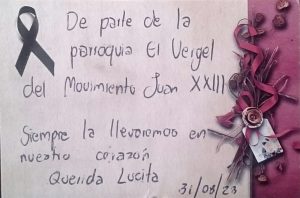 De parte de la
parroquia El Vergel
del Movimiento Juan XXIII
Siempre la llevaremos en
nuestro corazón
Querida Lucita
31/08/23